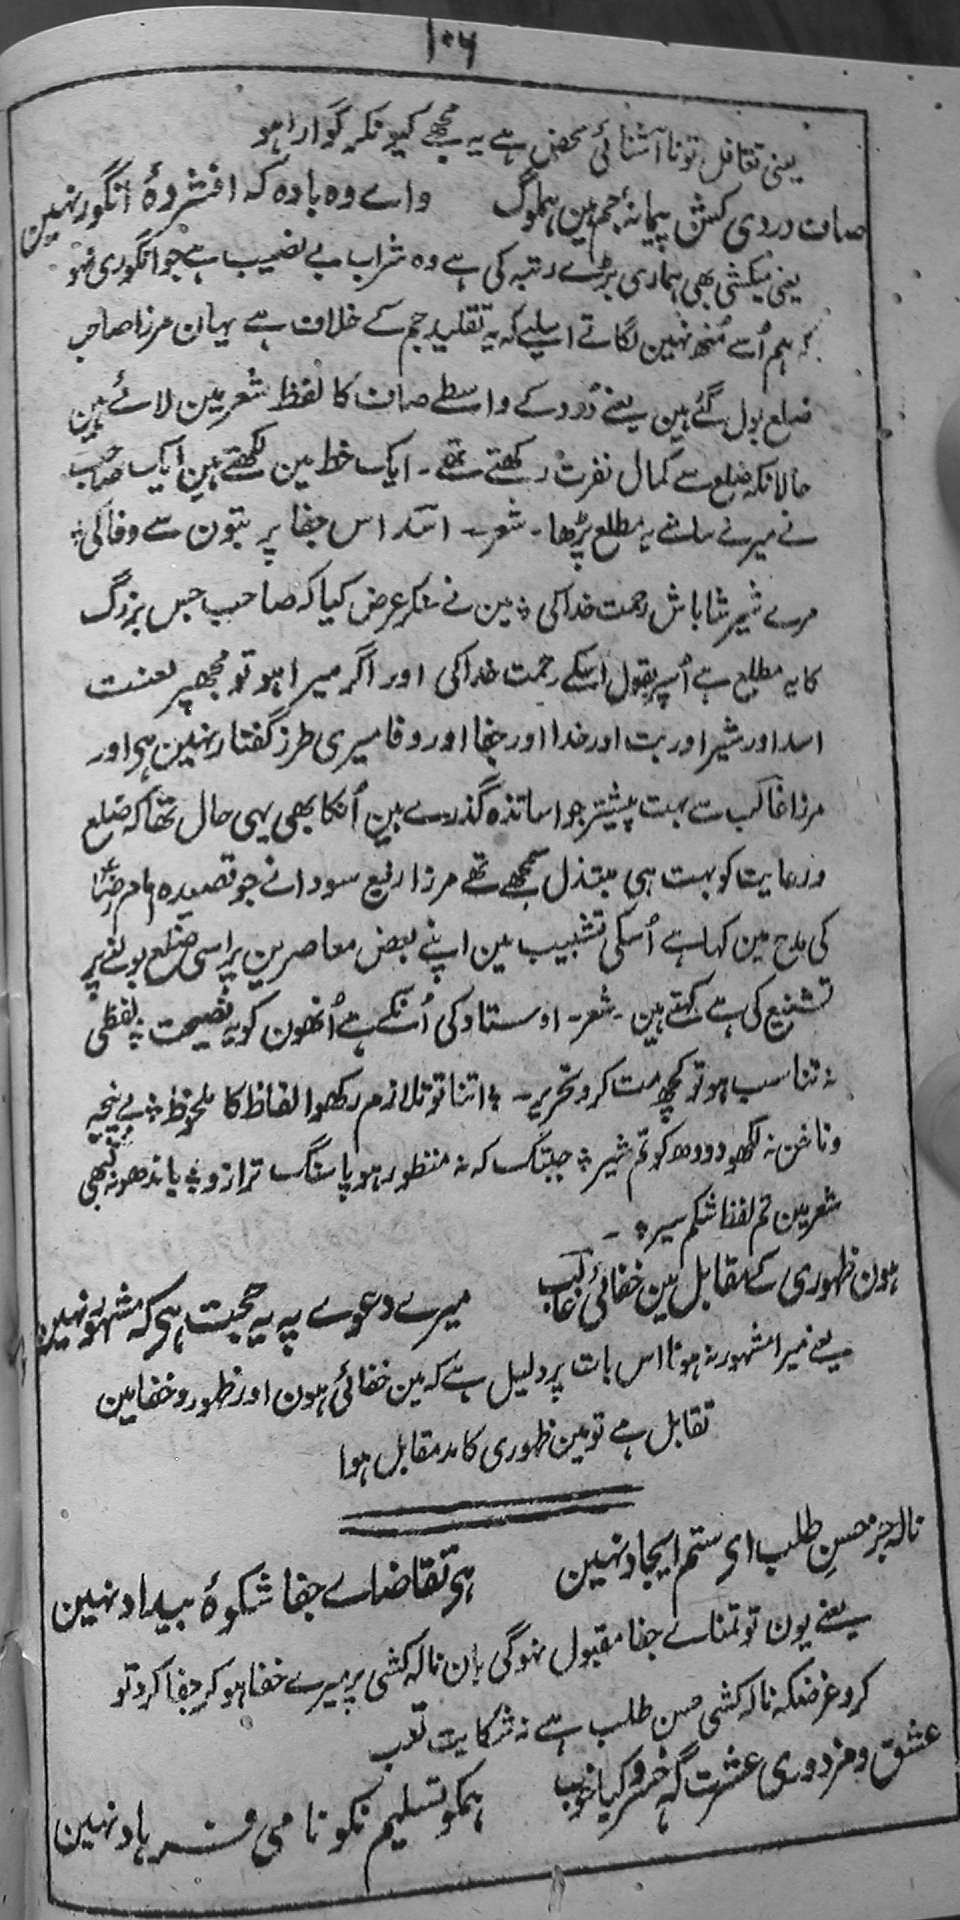 ۱۰۶
یعنی تغافل تو نا آشنائی محض ہے یہ مجھے کیونکر گوارا ہو
صاف دردی کش پیمانۂ جم ہین ہملوگ واے وہ بادہ کہ افشردۂ انگور نہین
یعنی میکشی بھی ہماری بڑے رتبہ کی ہے وہ شراب بے نصیب ہے جو انگوری نہو
کہ ہم اُسے مُنھ نہین لگاتے اسلیے کہ یہ تقلید جم کے خلاف ہے یہان مرزا صاحب
ضلع بول گئے ہین یعنے دُرد کے واسطے صاف کا لفظ شعر مین لائے ہین
حالانکہ ضلع سے کمال نفرت رکھتے تھے ۔ ایک خط مین لکھتے ہین ایک صاحب
نے میرے سامنے یہ مطلع پڑھا ۔ شعر ۔ اسد اس جفا پر بتون سے وفا کی ؞
مرے شیر شاباش رحمت خدا کی ؞ مین نے سنکر عرض کیا کہ صاحب جس بزرگ
کا یہ مطلع ہے اُسپر بقول اسکے رحمت خدا کی اور اگر میرا ہو تو مجھپر لعنت
اسد اور شیر اور بت اور خدا اور جفا اور وفا میری طرز گفتار نہین ہی اور
مرزا غالب سے بہت پیشتر جو اساتذہ گذرے ہین اُنکا بھی یہی حال تھا کہ ضلع
و رعایت کو بہت ہی مبتذل سمجھے تھے مرزا رفیع سودا نے جو قصیدہ امام رضاؑ
کی مدح مین کہا ہے اُسکی تشبیب مین اپنے بعض معاصرین پر اسی ضلع بولنے پر
تشنیع کی ہے کہتے ہین ۔ شعر ۔ اوستاد کی اُنکے ہے اُنھون کو یہ نصیحت ؞ لفظی
نہ تناسب ہو تو کچھ مت کرو تحریر ۔ ؞ اتنا تو تلازم رکھو الفاظ کا ملحوظ ؞ بے پنجہ
و ناخن نہ لکھو دودھ کو تم شیر ؞ جبتک کہ نہ منظور ہو پاسنگ ترازو ؞ باندھو نہ کبھی
شعر مین تم لفظ شکم سیر ؞ ۔
ہون ظہوری کے مقابل مین خفائی غالب میرے دعوے پہ یہ حجت ہی کہ مشہور نہین
یعنے میرا مشہور نہ ہونا اس بات پر دلیل ہے کہ مین خفائی ہون اور ظہور و خفا مین
تقابل ہے تو مین ظہوری کا مد مقابل ہوا
نالہ جز حسنِ طلب ای ستم ایجاد نہین ہی تقاضاے جفا شکوۂ بیداد نہین
یعنے یون تو تمناے جفا مقبول نہوگی ہان نالہ کشی پر میرے خفا ہو کر جفا کرو تو
کرو غرضکہ نالہ کشی حسن طلب ہے نہ شکایت تعب
عشق و مزدوری عشرت گہ خسرو کیا خوب ہمکو تسلیم نکو نامی فرہاد نہین